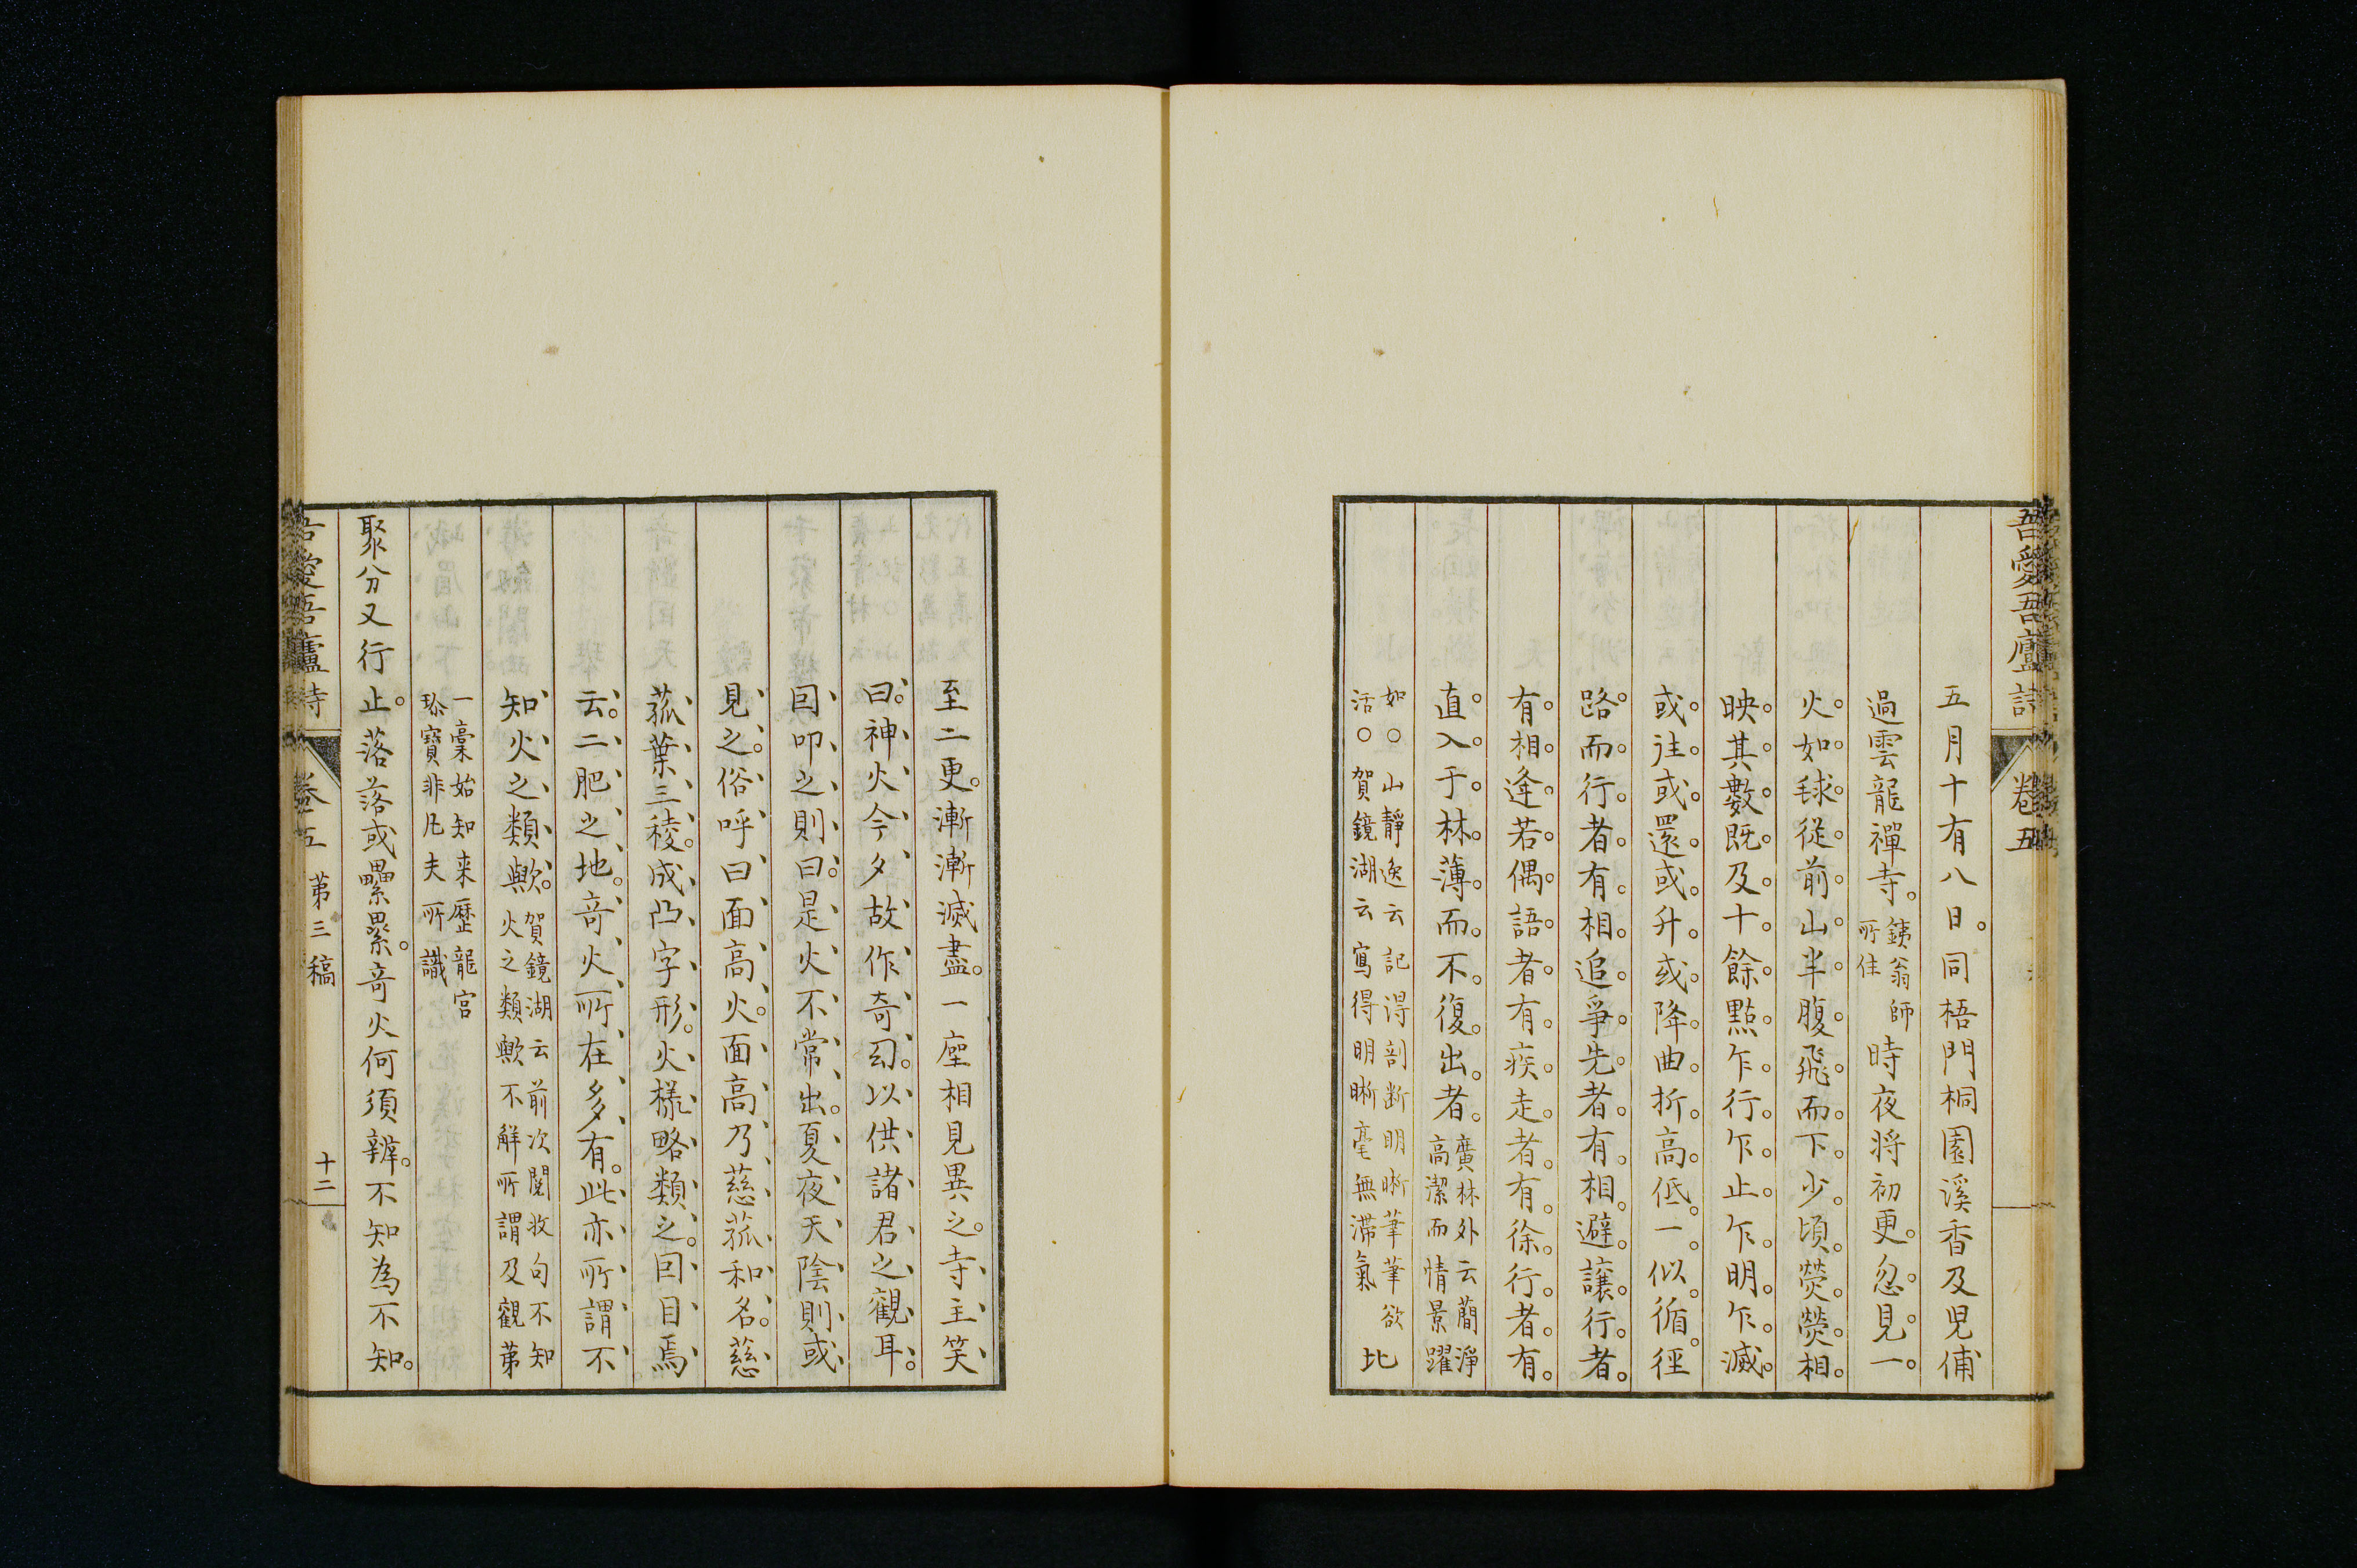 吾愛吾廬詩
卷五
五月十有八日。同梧門桐園溪香及児俌
過雲龍禪寺。銕翁師所住時夜将初更。忽見一
火如毬從前山半腹飛而下少頃熒熒相
映其數既及十餘點乍行乍止乍明乍滅
或往或還或升或降曲折高低一似循徑
路而行者有相追爭先者有相避讓行者
有相逢若偶語者有疾走者有徐行者有
直入于林薄而不復出者。廣林外云蕳淨
高潔而情景躍
如○山靜逸云記得剖断明晣筆筆欲
活○賀鏡湖云寫得明晣毫無滯氣
比
至二更。漸漸滅盡。一座相見異之。寺主笑
曰。神火今夕故作奇幻。以供諸君之觀耳。
囙叩之則曰。是火不常出。夏夜天陰則或
見之。俗呼曰面高火。面高乃慈菰和名。慈
菰葉三稜。成凸字形。火様略類之。囙目焉
云。二肥之地。竒火所在多有。此亦所謂不
知火之類歟。賀鏡湖云前次閱收句不知
火之類歟不解所謂及觀第
一稾始知来歴龍宫
珎寶非凡夫所識
聚分又行止。落落或纍纍。竒火何須辨。不知為不知。
吾愛吾廬詩
卷五 第三稿
十二